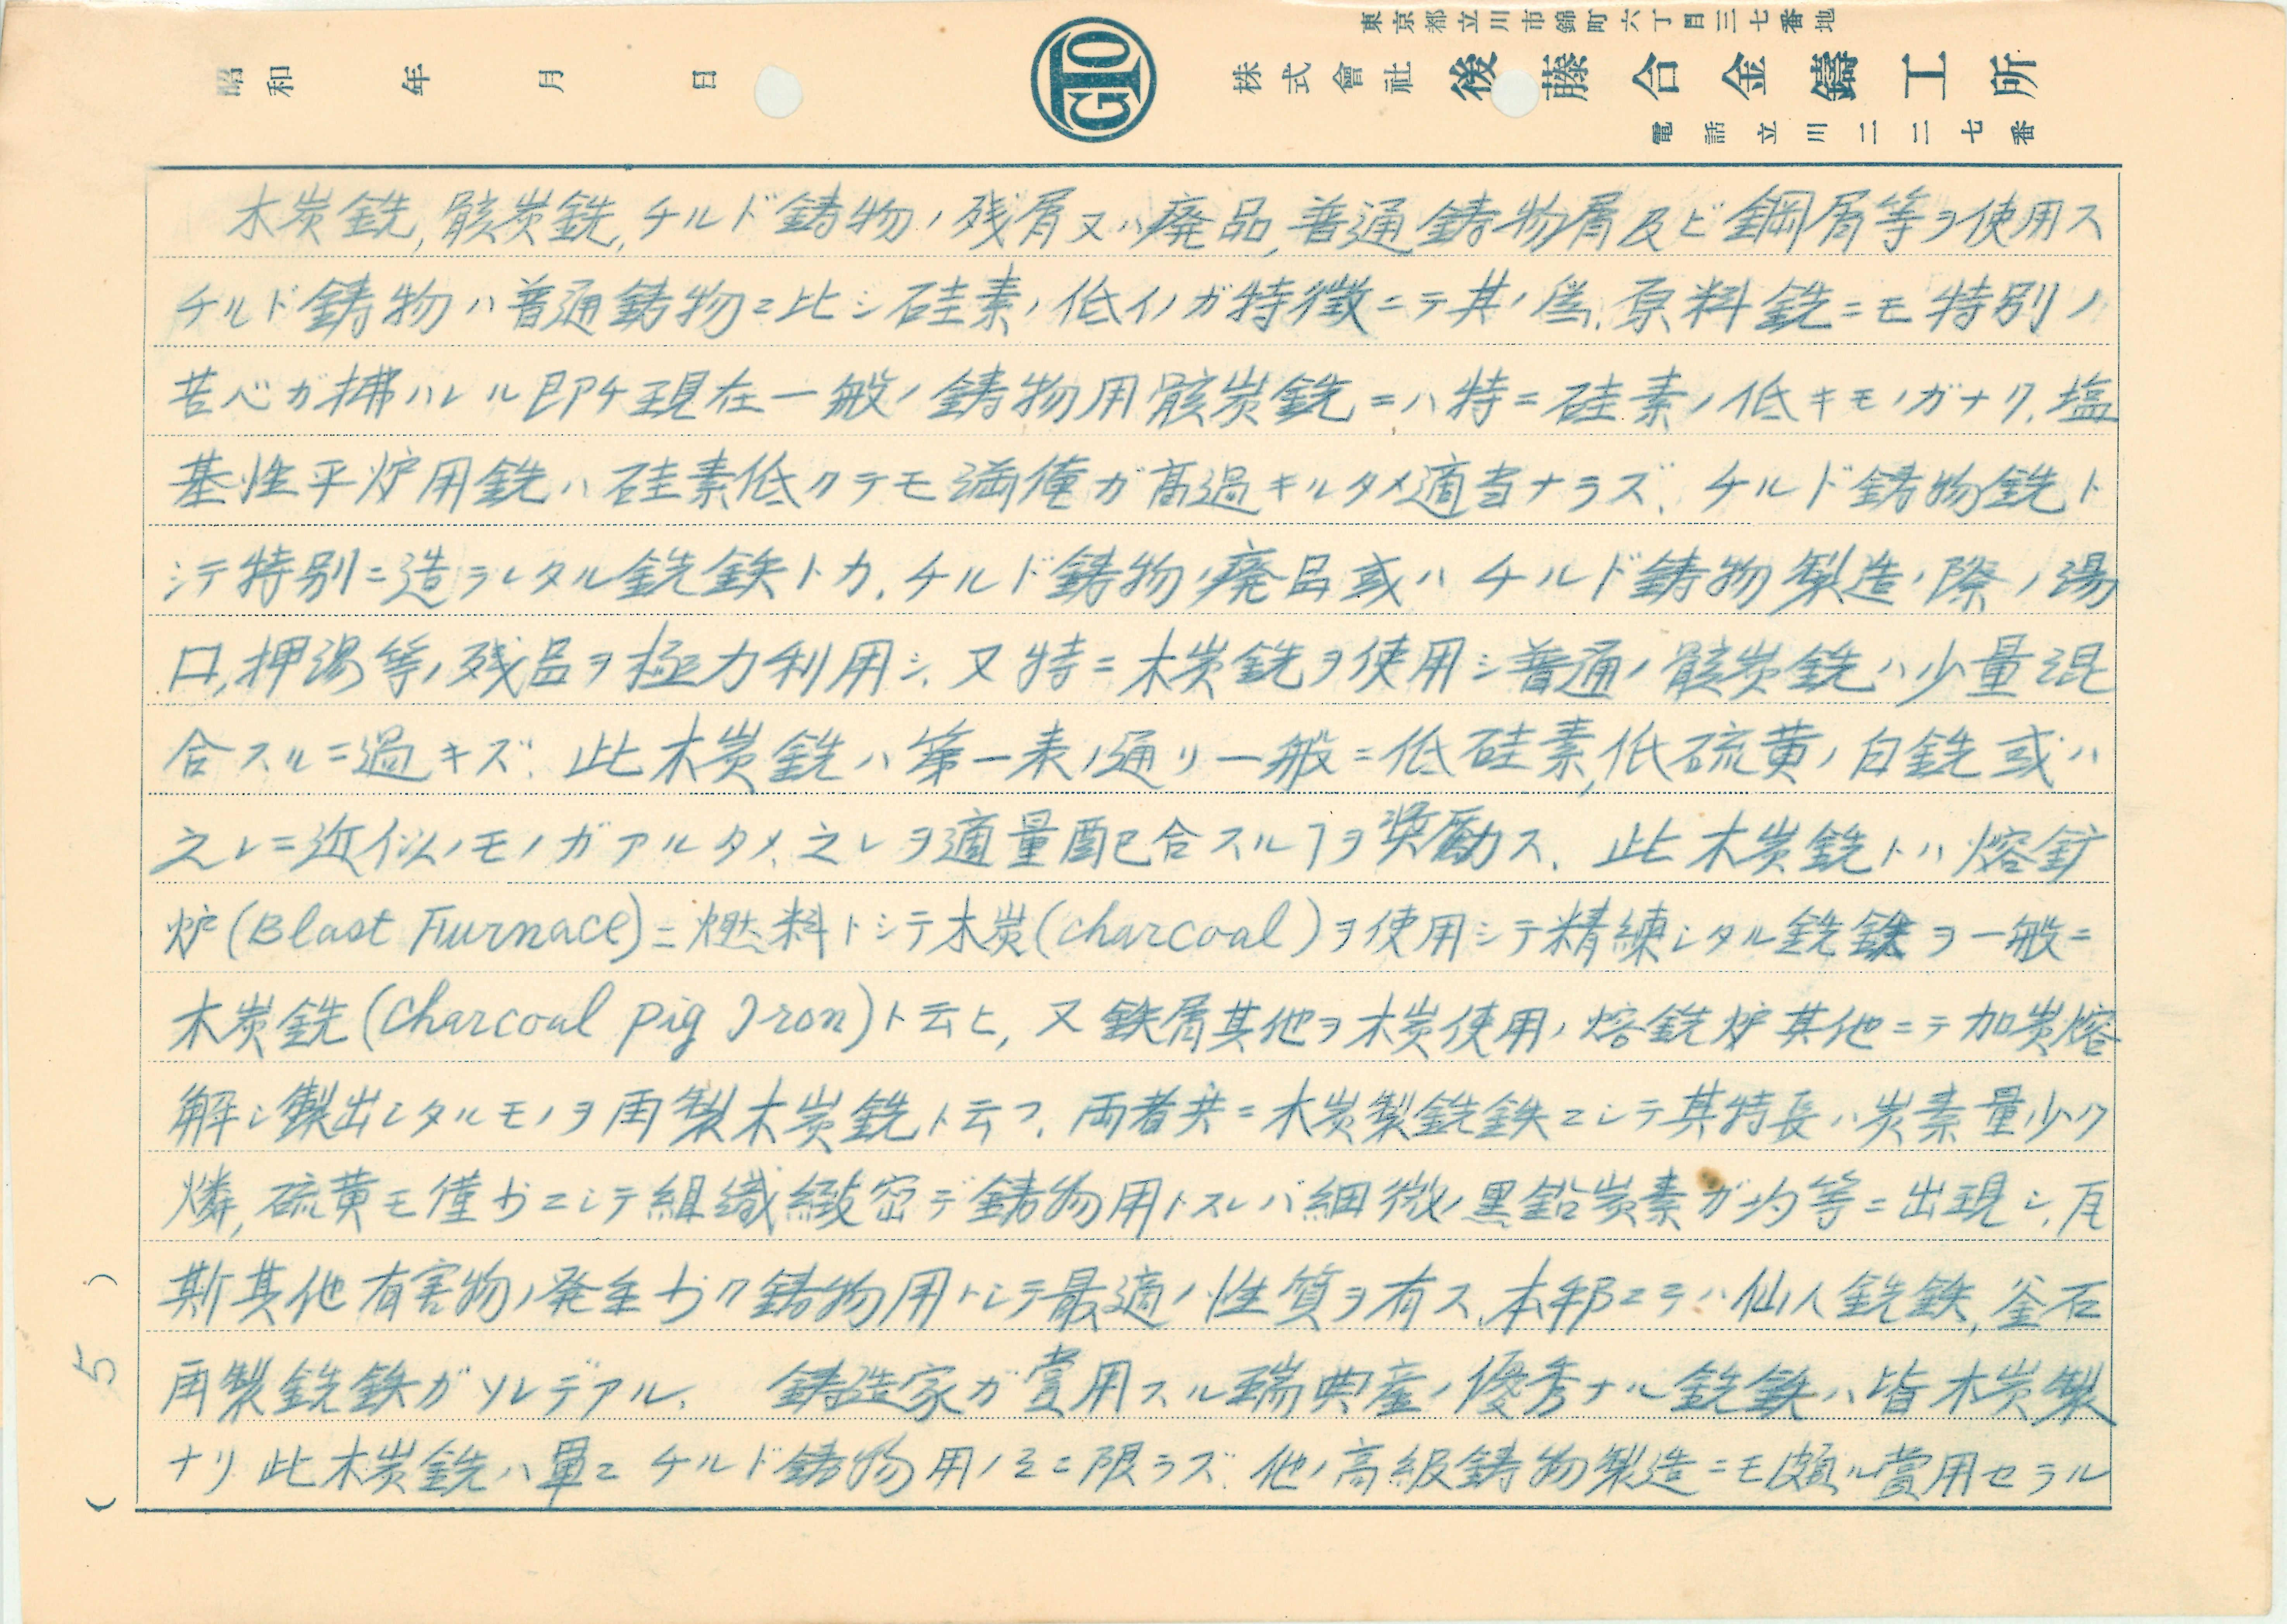 東京都立川市錦町六丁目三七番地
株式會社 後藤合金鑄工所
電話立川二二七番
昭和 年 月 日
GTO
木炭銑,骸炭銑,チルド鋳物ノ残屑又ハ廃品,普通鋳物屑及ビ鋼屑等ヲ使用ス
チルド鋳物ハ普通鋳物ニ比シ硅素ノ低イノガ特徴ニテ其ノ為、原料銑ニモ特別ノ
苦心ガ拂ハレル即チ現在一般ノ鋳物用骸炭銑ニハ特ニ硅素ノ低キモノガナク、塩
基性平炉用銑ハ硅素低クテモ満俺ガ髙過キルタメ適当ナラズ、チルド鋳物銑ト
シテ特別ニ造ラレタル銑鉄トカ、チルド鋳物ノ廃品或ハチルド鋳物製造ノ際ノ湯
口,押湯等ノ残品ヲ極力利用シ、又特ニ木炭銑ヲ使用シ普通ノ骸炭銑ハ少量混
合スルニ過キズ、此木炭銑ハ第一表ノ通リ一般ニ低硅素,低硫黄ノ白銑或ハ
之レニ近似ノモノガアルタメ、之レヲ適量配合スルヿヲ奨励ス、此木炭銑トハ熔鉱
炉(Blast Furnace)ニ燃料トシテ木炭(charcoal)ヲ使用シテ精練シタル銑鉄ヲ一般ニ
木炭銑(Charcoal pig Iron)ト云ヒ,又鉄屑其他ヲ木炭使用ノ熔銑炉其他ニテ加炭熔
解シ製出シタルモノヲ再製木炭銑ト云フ、両者共ニ木炭製銑鉄ニシテ其特長ハ炭素量少ク
燐,硫黄モ僅少ニシテ組織緻密デ鋳物用トスレバ細微ノ黒鉛炭素ガ均等ニ出現シ、瓦
斯其他有害物ノ発生少ク鋳物用トシテ最適ノ性質ヲ有ス、本邦ニテハ仙人銑鉄,釜石
再製銑鉄ガソレデアル、鋳造家ガ賞用スル瑞典産ノ優秀ナル銑鉄ハ皆木炭製
ナリ此木炭銑ハ單ニチルド鋳物用ノミニ限ラズ他ノ高級鋳物製造ニモ頗ル賞用セラル
(5)